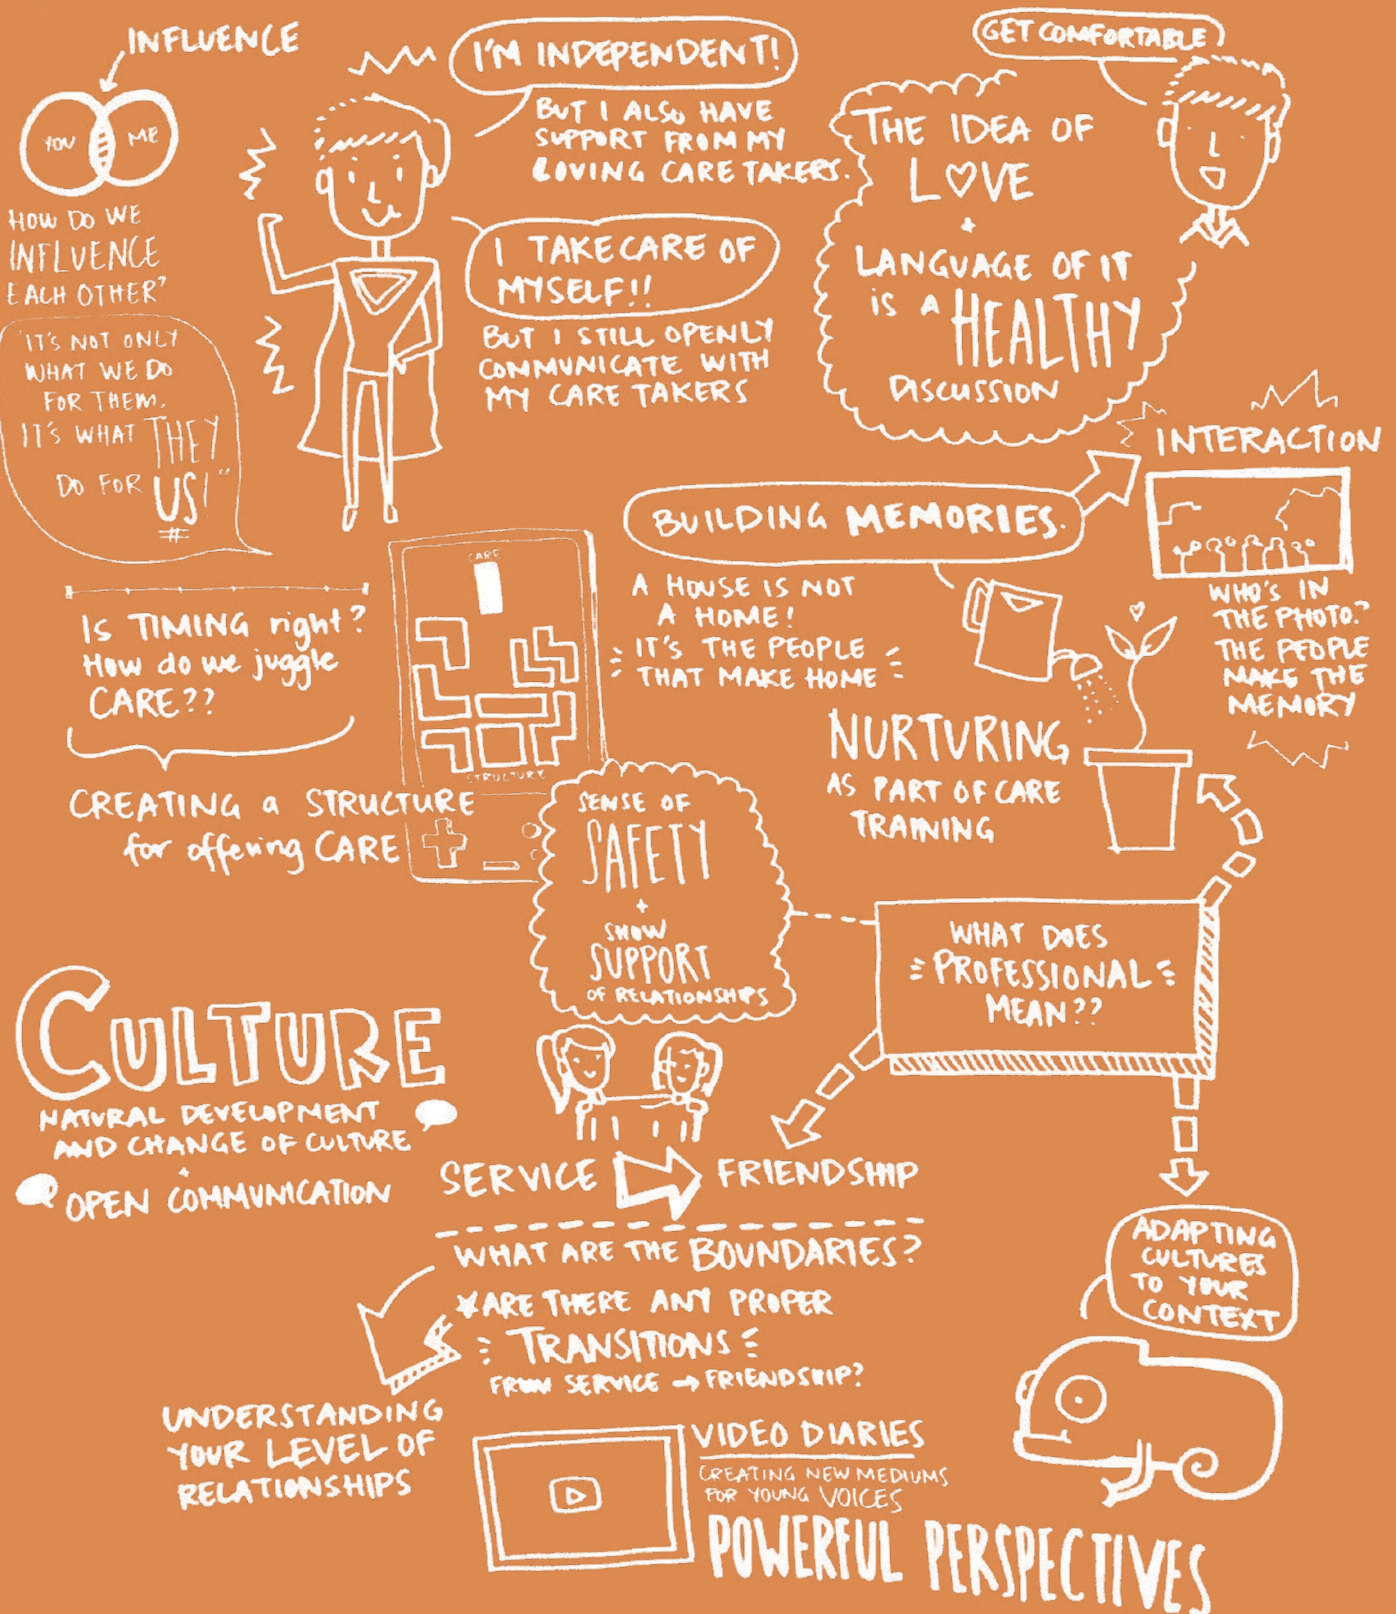 INFLUENCE
YOU
ME
HOW DO WE
INFLUENCE
EACH OTHER"
"IT'S NOT ONLY
WHAT WE DO
FOR THEM.
IT'S WHAT THEY
DO FOR US!"
I'M INDEPENDENT!
BUT I ALSO HAVE
SUPPORT FROM MY
LOVING CARE TAKERS.
I TAKE CARE OF
MYSELF!!
BUT I STILL OPENLY
COMMUNICATE WITH
MY CARE TAKERS
GET COMFORTABLE
THE IDEA OF
LOVE
+
LANGUAGE OF IT
IS A HEALTHY
DISCUSSION
INTERACTION
WHO'S IN
THE PHOTO?
THE PEOPLE
MAKE THE
MEMORY
BUILDING MEMORIES.
A HOUSE IS NOT
A HOME!
IT'S THE PEOPLE
THAT MAKE HOME
NURTURING
AS PART OF CARE
TRAINING
IS TIMING right?
How do we juggle
CARE??
CREATING a STRUCTURE
for offering CARE
CARE
STRUCTURE
SENSE OF
SAFETY
+
SHOW
SUPPORT
OF RELATIONSHIPS
WHAT DOES
PROFESSIONAL
MEAN??
CULTURE
NATURAL DEVELOPMENT
AND CHANGE OF CULTURE
+
OPEN COMMUNICATION
SERVICE
FRIENDSHIP
WHAT ARE THE BOUNDARIES?
*ARE THERE ANY PROPER
TRANSITIONS
FROM SERVICE → FRIENDSHIP?
UNDERSTANDING
YOUR LEVEL OF
RELATIONSHIPS
ADAPTING
CULTURES
TO YOUR
CONTEXT
VIDEO DIARIES
CREATING NEW MEDIUMS
FOR YOUNG VOICES
POWERFUL PERSPECTIVES